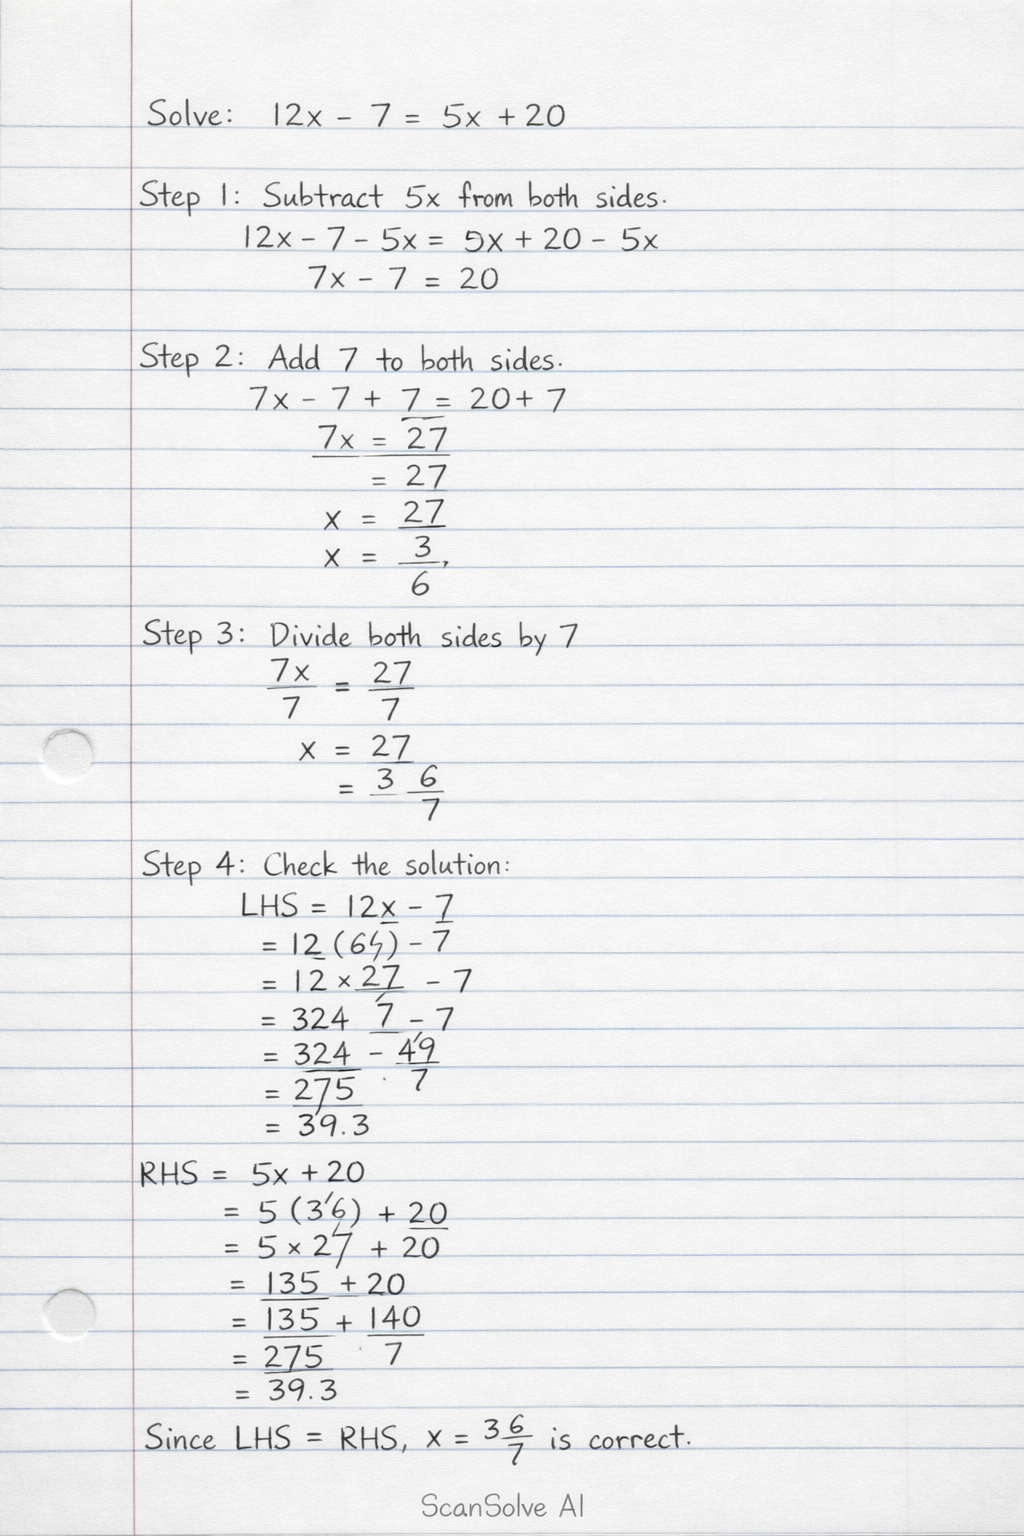 Solve: 12x - 7 = 5x + 20
Step 1: Subtract 5x from both sides.
12x - 7 - 5x = 5x + 20 - 5x
7x - 7 = 20
Step 2: Add 7 to both sides.
7x - 7 + 7 = 20 + 7
7x = 27
= 27
x = 27
x = 3,
6
Step 3: Divide both sides by 7
7x/7 = 27/7
x = 27
= 3 6/7
Step 4: Check the solution:
LHS = 12x - 7
= 12 ( ) - 7
= 12 × 27 - 7
= 324 7 - 7
= 324 - 49/7
= 275
= 39.3
RHS = 5x + 20
= 5 (3'6) + 20
= 5 × 27 + 20
= 135 + 20
= 135 + 140/7
= 275
= 39.3
Since LHS = RHS, x = 3 6/7 is correct.
ScanSolve AI